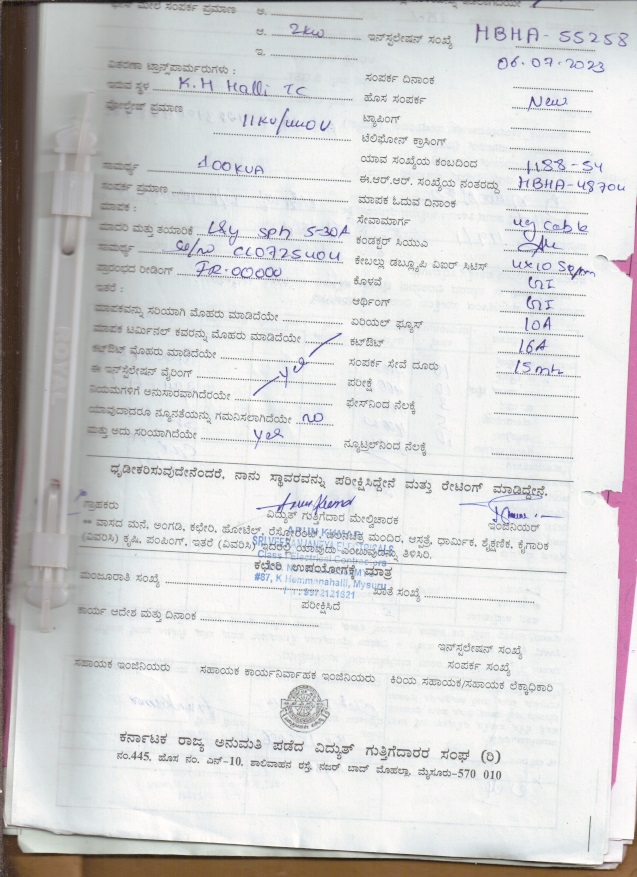 ಮೇಲೆ ಸಂಪರ್ಕ ಪ್ರಮಾಣ ಅ.
ಆ. 2kw ಇನ್‌ಸ್ಟಲೇಷನ್ ಸಂಖ್ಯೆ HBHA-55258
ಇ. 06.07.2023
ವಿತರಣಾ ಟ್ರಾನ್ಸ್‌ಫಾರ್ಮರುಗಳು : ಸಂಪರ್ಕ ದಿನಾಂಕ
ಇರುವ ಸ್ಥಳ K.H Halli TC ಹೊಸ ಸಂಪರ್ಕ New
ವೋಲ್ಟೇಜ್ ಪ್ರಮಾಣ 11KV/440V ಟ್ಯಾಪಿಂಗ್
ಟೆಲಿಫೋನ್ ಕ್ರಾಸಿಂಗ್
ಸಾಮರ್ಥ್ಯ 100KVA ಯಾವ ಸಂಖ್ಯೆಯ ಕಂಬದಿಂದ 1188-54
ಸಂಪರ್ಕ ಪ್ರಮಾಣ ಈ.ಆರ್.ಆರ್. ಸಂಖ್ಯೆಯ ನಂತರದ್ದು HBHA-48704
ಮಾಪಕ : ಮಾಪಕ ಓದುವ ದಿನಾಂಕ
ಮಾದರಿ ಮತ್ತು ತಯಾರಿಕೆ L&y sph 5-30A ಸೇವಾಮಾರ್ಗ ug cable
ಸಾಮರ್ಥ್ಯ Sl/no CL0725404 ಕಂಡಕ್ಟರ್ ಸಿಯುಎ
ಪ್ರಾರಂಭದ ರೀಡಿಂಗ್ FR-00000 ಕೇಬಲ್ಲು ಡಬ್ಲ್ಯೂಪಿ ಎಐಆರ್ ಸಿಟಿಸ್ 4x10 Sqmm
ಇತರೆ : ಕೊಳವೆ GI
ಮಾಪಕವನ್ನು ಸರಿಯಾಗಿ ಮೊಹರು ಮಾಡಿದೆಯೇ ಅರ್ಥಿಂಗ್ GI
ಮಾಪಕ ಟರ್ಮಿನಲ್ ಕವರನ್ನು ಮೊಹರು ಮಾಡಿದೆಯೇ ಏರಿಯಲ್ ಫ್ಯೂಸ್ 10A
ಕಟ್‌ಔಟ್ ಮೊಹರು ಮಾಡಿದೆಯೇ ಕಟ್‌ಔಟ್ 16A
ಈ ಇನ್‌ಸ್ಟಲೇಷನ್ ವೈರಿಂಗ್ yes ಸಂಪರ್ಕ ಸೇವೆ ದೂರು 15mtr
ನಿಯಮಗಳಿಗೆ ಅನುಸಾರವಾಗಿದೆಯೇ ಪರೀಕ್ಷೆ
ಯಾವುದಾದರೂ ನ್ಯೂನತೆಯನ್ನು ಗಮನಿಸಲಾಗಿದೆಯೇ NO ಫೇಸ್‌ನಿಂದ ನೆಲಕ್ಕೆ
ಮತ್ತು ಅದು ಸರಿಯಾಗಿದೆಯೇ yes ನ್ಯೂಟ್ರಲ್‌ನಿಂದ ನೆಲಕ್ಕೆ
ಧೃಡೀಕರಿಸುವುದೇನೆಂದರೆ, ನಾನು ಸ್ಥಾವರವನ್ನು ಪರೀಕ್ಷಿಸಿದ್ದೇನೆ ಮತ್ತು ರೇಟಿಂಗ್ ಮಾಡಿದ್ದೇನೆ.
ಗ್ರಾಹಕರು ವಿದ್ಯುತ್ ಗುತ್ತಿಗೆದಾರ ಮೇಲ್ವಿಚಾರಕ ಇಂಜಿನಿಯರ್
ARUN KUMAR
** ವಾಸದ ಮನೆ, ಅಂಗಡಿ, ಕಛೇರಿ, ಹೋಟೆಲ್, ಮಂದಿರ, ಆಸ್ಪತ್ರೆ, ಧಾರ್ಮಿಕ, ಶೈಕ್ಷಣಿಕ, ಕೈಗಾರಿಕೆ
(ವಿವರಿಸಿ) ಕೃಷಿ, ಪಂಪಿಂಗ್, ಇತರೆ (ವಿವರಿಸಿ) ಇದರಲ್ಲಿ ಯಾವುದು ಎಂಬುವುದನ್ನು ತಿಳಿಸಿರಿ.
ಕಛೇರಿ ಉಪಯೋಗಕ್ಕೆ ಮಾತ್ರ
#87, K Hemmanahalli, Mysuru
ಮಂಜೂರಾತಿ ಸಂಖ್ಯೆ ಖಾತೆ ಸಂಖ್ಯೆ
ಪರೀಕ್ಷಿಸಿದೆ
ಕಾರ್ಯ ಆದೇಶ ಮತ್ತು ದಿನಾಂಕ
ಇನ್‌ಸ್ಟಲೇಷನ್ ಸಂಖ್ಯೆ
ಸಂಪರ್ಕ ಸಂಖ್ಯೆ
ಸಹಾಯಕ ಇಂಜಿನಿಯರು ಸಹಾಯಕ ಕಾರ್ಯನಿರ್ವಾಹಕ ಇಂಜಿನಿಯರು ಕಿರಿಯ ಸಹಾಯಕ/ಸಹಾಯಕ ಲೆಕ್ಕಾಧಿಕಾರಿ
ಕರ್ನಾಟಕ ರಾಜ್ಯ ಅನುಮತಿ ಪಡೆದ ವಿದ್ಯುತ್ ಗುತ್ತಿಗೆದಾರರ ಸಂಘ (ರಿ)
ನಂ.445, ಹೊಸ ನಂ. ಎನ್-10, ಶಾಲಿವಾಹನ ರಸ್ತೆ, ನಜರ್ ಬಾದ್ ಮೊಹಲ್ಲಾ, ಮೈಸೂರು-570 010